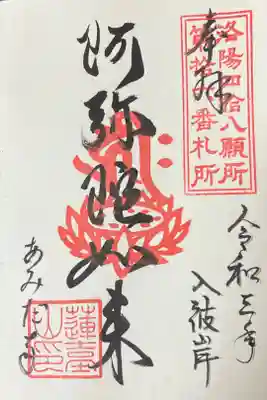 奉拝
洛陽四拾八願所
番札所
阿弥陀如来
令和三年
入彼岸
あみだ寺
蓮臺
山印